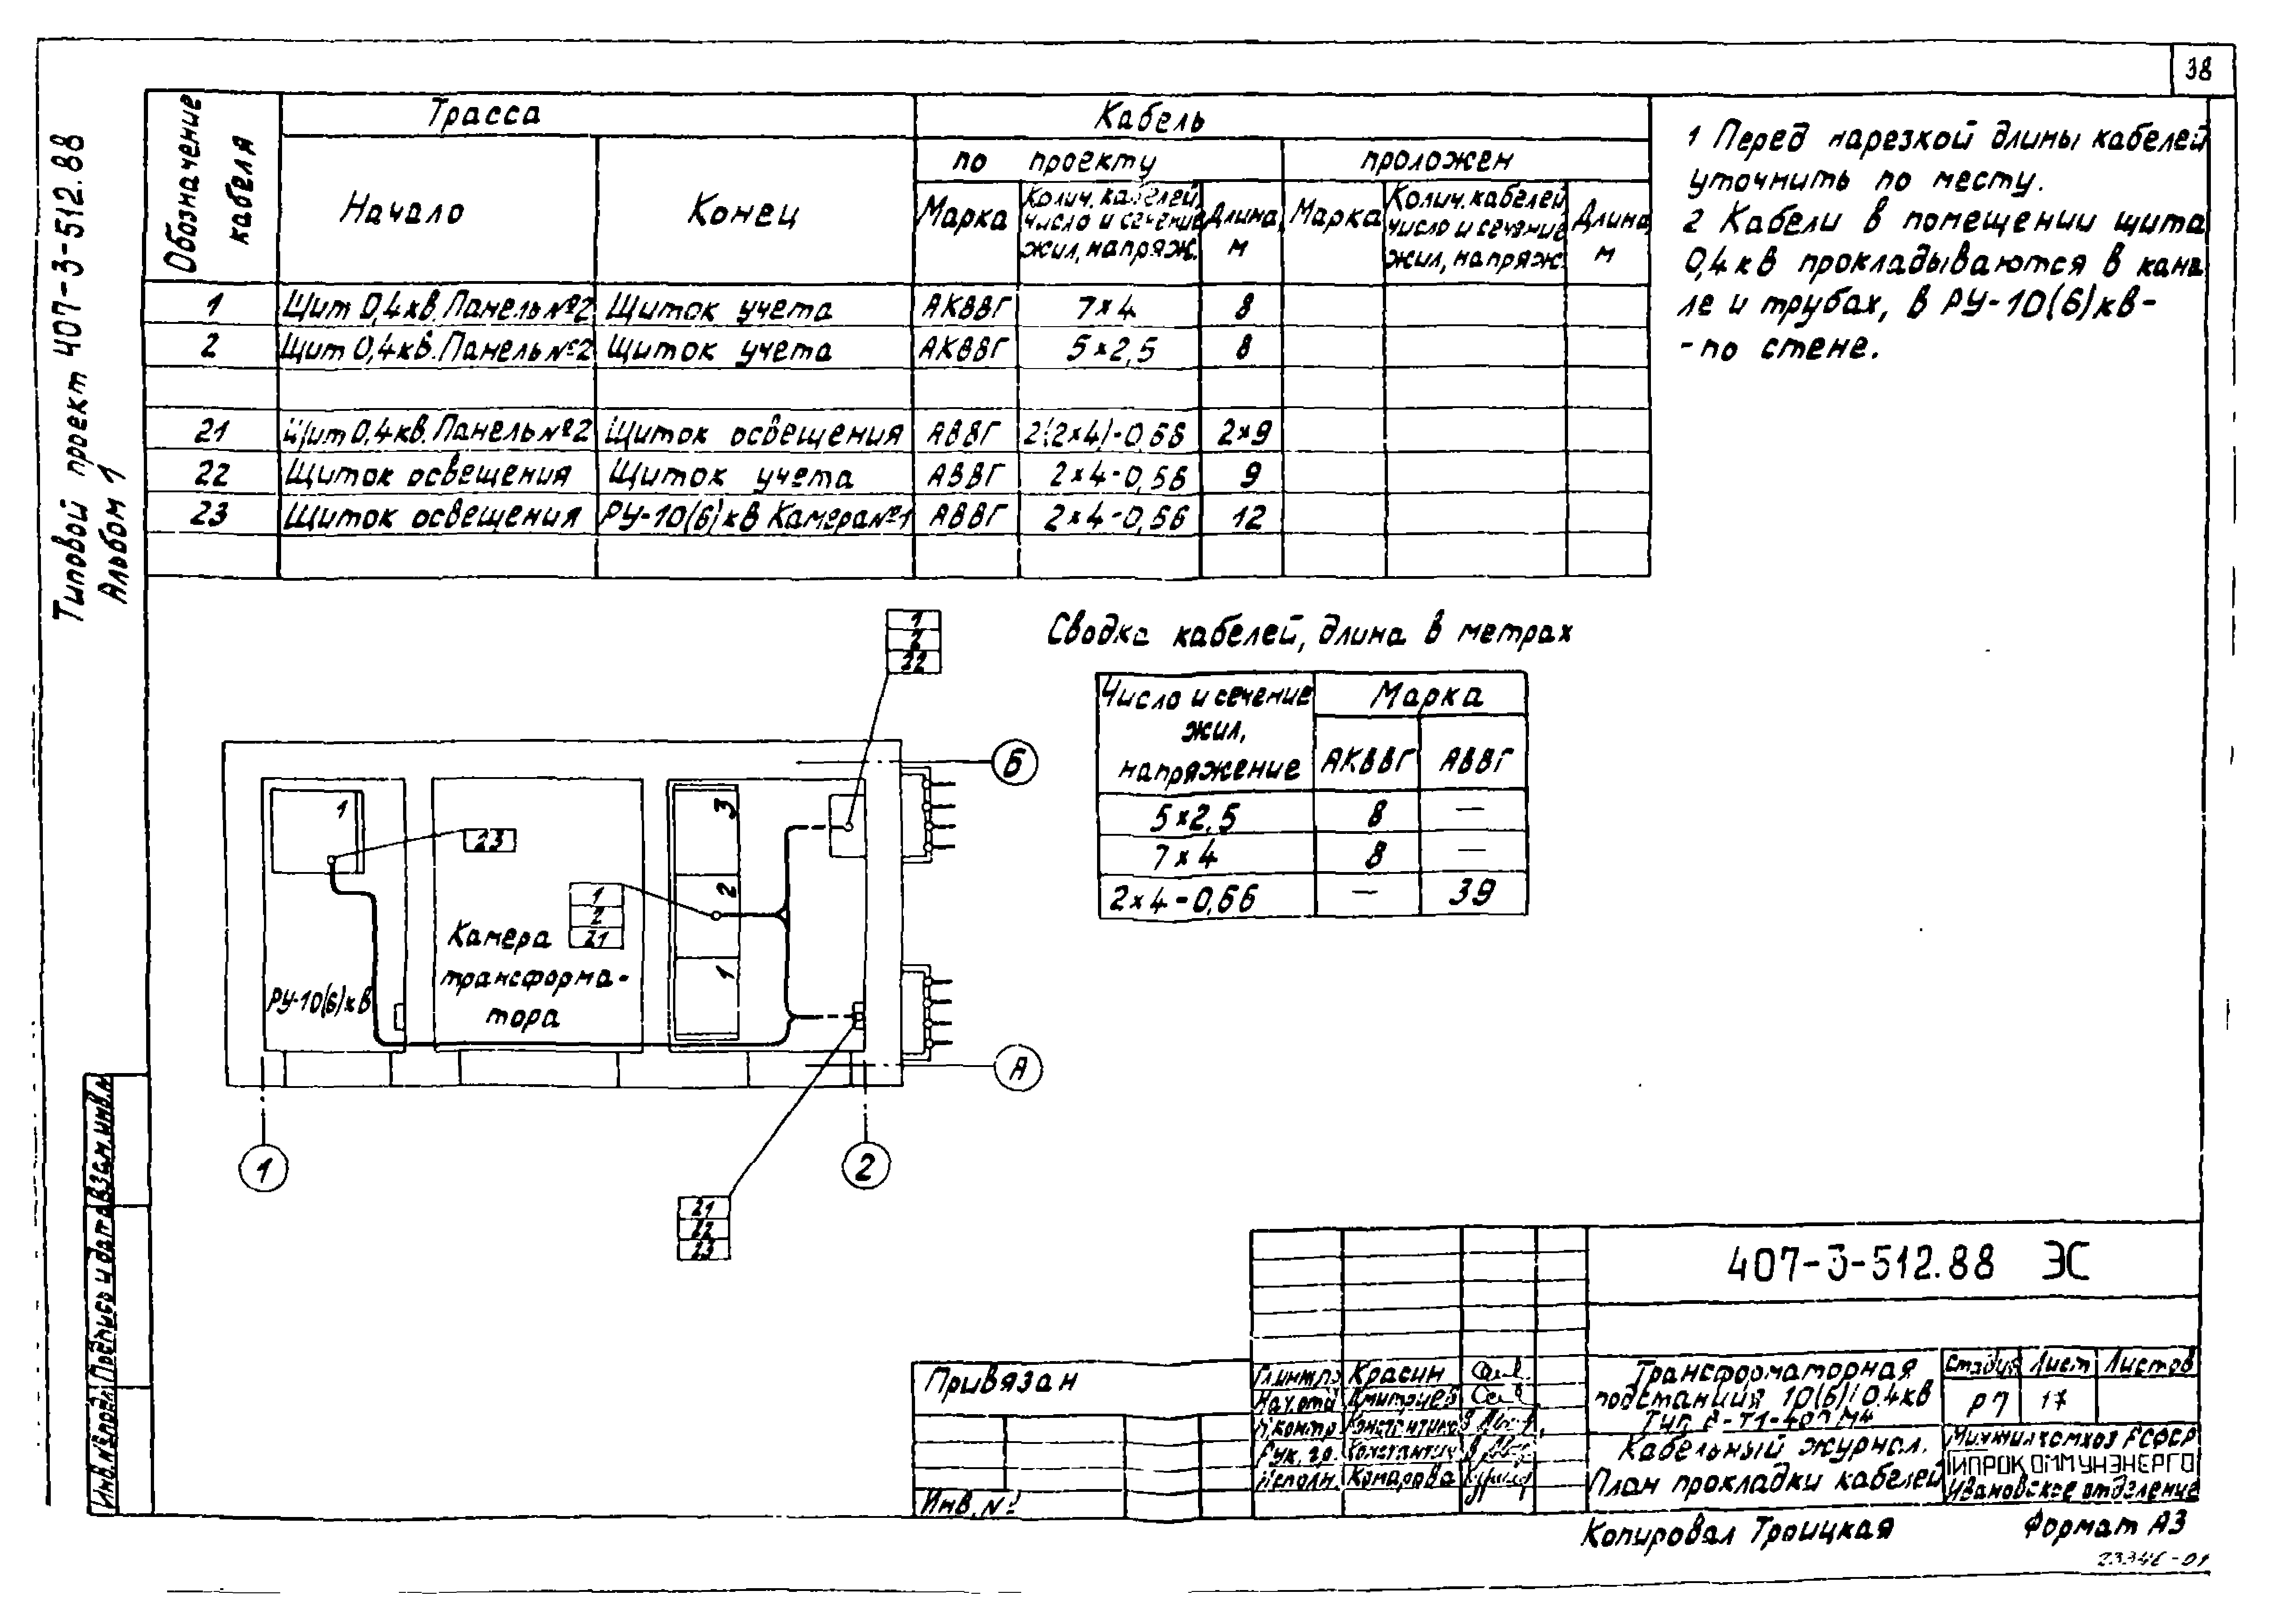 38
Типовой проект 407-3-512.88
Альбом 1
Обозначение кабеля
Трасса
Кабель
по проекту
проложен
Начало
Конец
Марка
Колич. кабелей, число и сечение жил, напряж.
Длина, м
Марка
Колич. кабелей число и сечение жил, напряж.
Длина, м
1 Щит 0,4кв. Панель №2 Щиток учета АКВВГ 7×4 8
2 Щит 0,4кв. Панель №2 Щиток учета АКВВГ 5×2,5 8
21 Щит 0,4кв. Панель №2 Щиток освещения АВВГ 2(2×4)-0,66 2×9
22 Щиток освещения Щиток учета АВВГ 2×4-0,66 9
23 Щиток освещения РУ-10(6)кв Камера №1 АВВГ 2×4-0,66 12
1 Перед нарезкой длины кабелей
уточнить по месту.
2 Кабели в помещении щита
0,4кв прокладываются в кана-
ле и трубах, в РУ-10(6)кв-
-по стене.
Сводка кабелей, длина в метрах
Число и сечение жил, напряжение
Марка
АКВВГ АВВГ
5×2,5 8 —
7×4 8 —
2×4-0,66 — 39
1
2
22
Б
1
23
3
2
1
1
2
21
Камера
трансформа-
тора
РУ-10(6)кв
А
1
2
21
22
23
407-3-512.88 ЭС
Привязан
Инв. №
Гл.инж.пр. Красин
Нач.отд Дмитриев
Н.контр
Рук. гр.
Исполн. Комарова
Трансформаторная
подстанция 10(6)/0.4кв
Кабельный журнал.
План прокладки кабелей
Стадия Лист Листов
РП 17
Минжилкомхоз РСФСР
ГИПРОКОММУНЭНЕРГО
Ивановское отделение
Копировал Троицкая
Формат А3
Взам.инв.№
Подпись и дата
Инв.№подл.